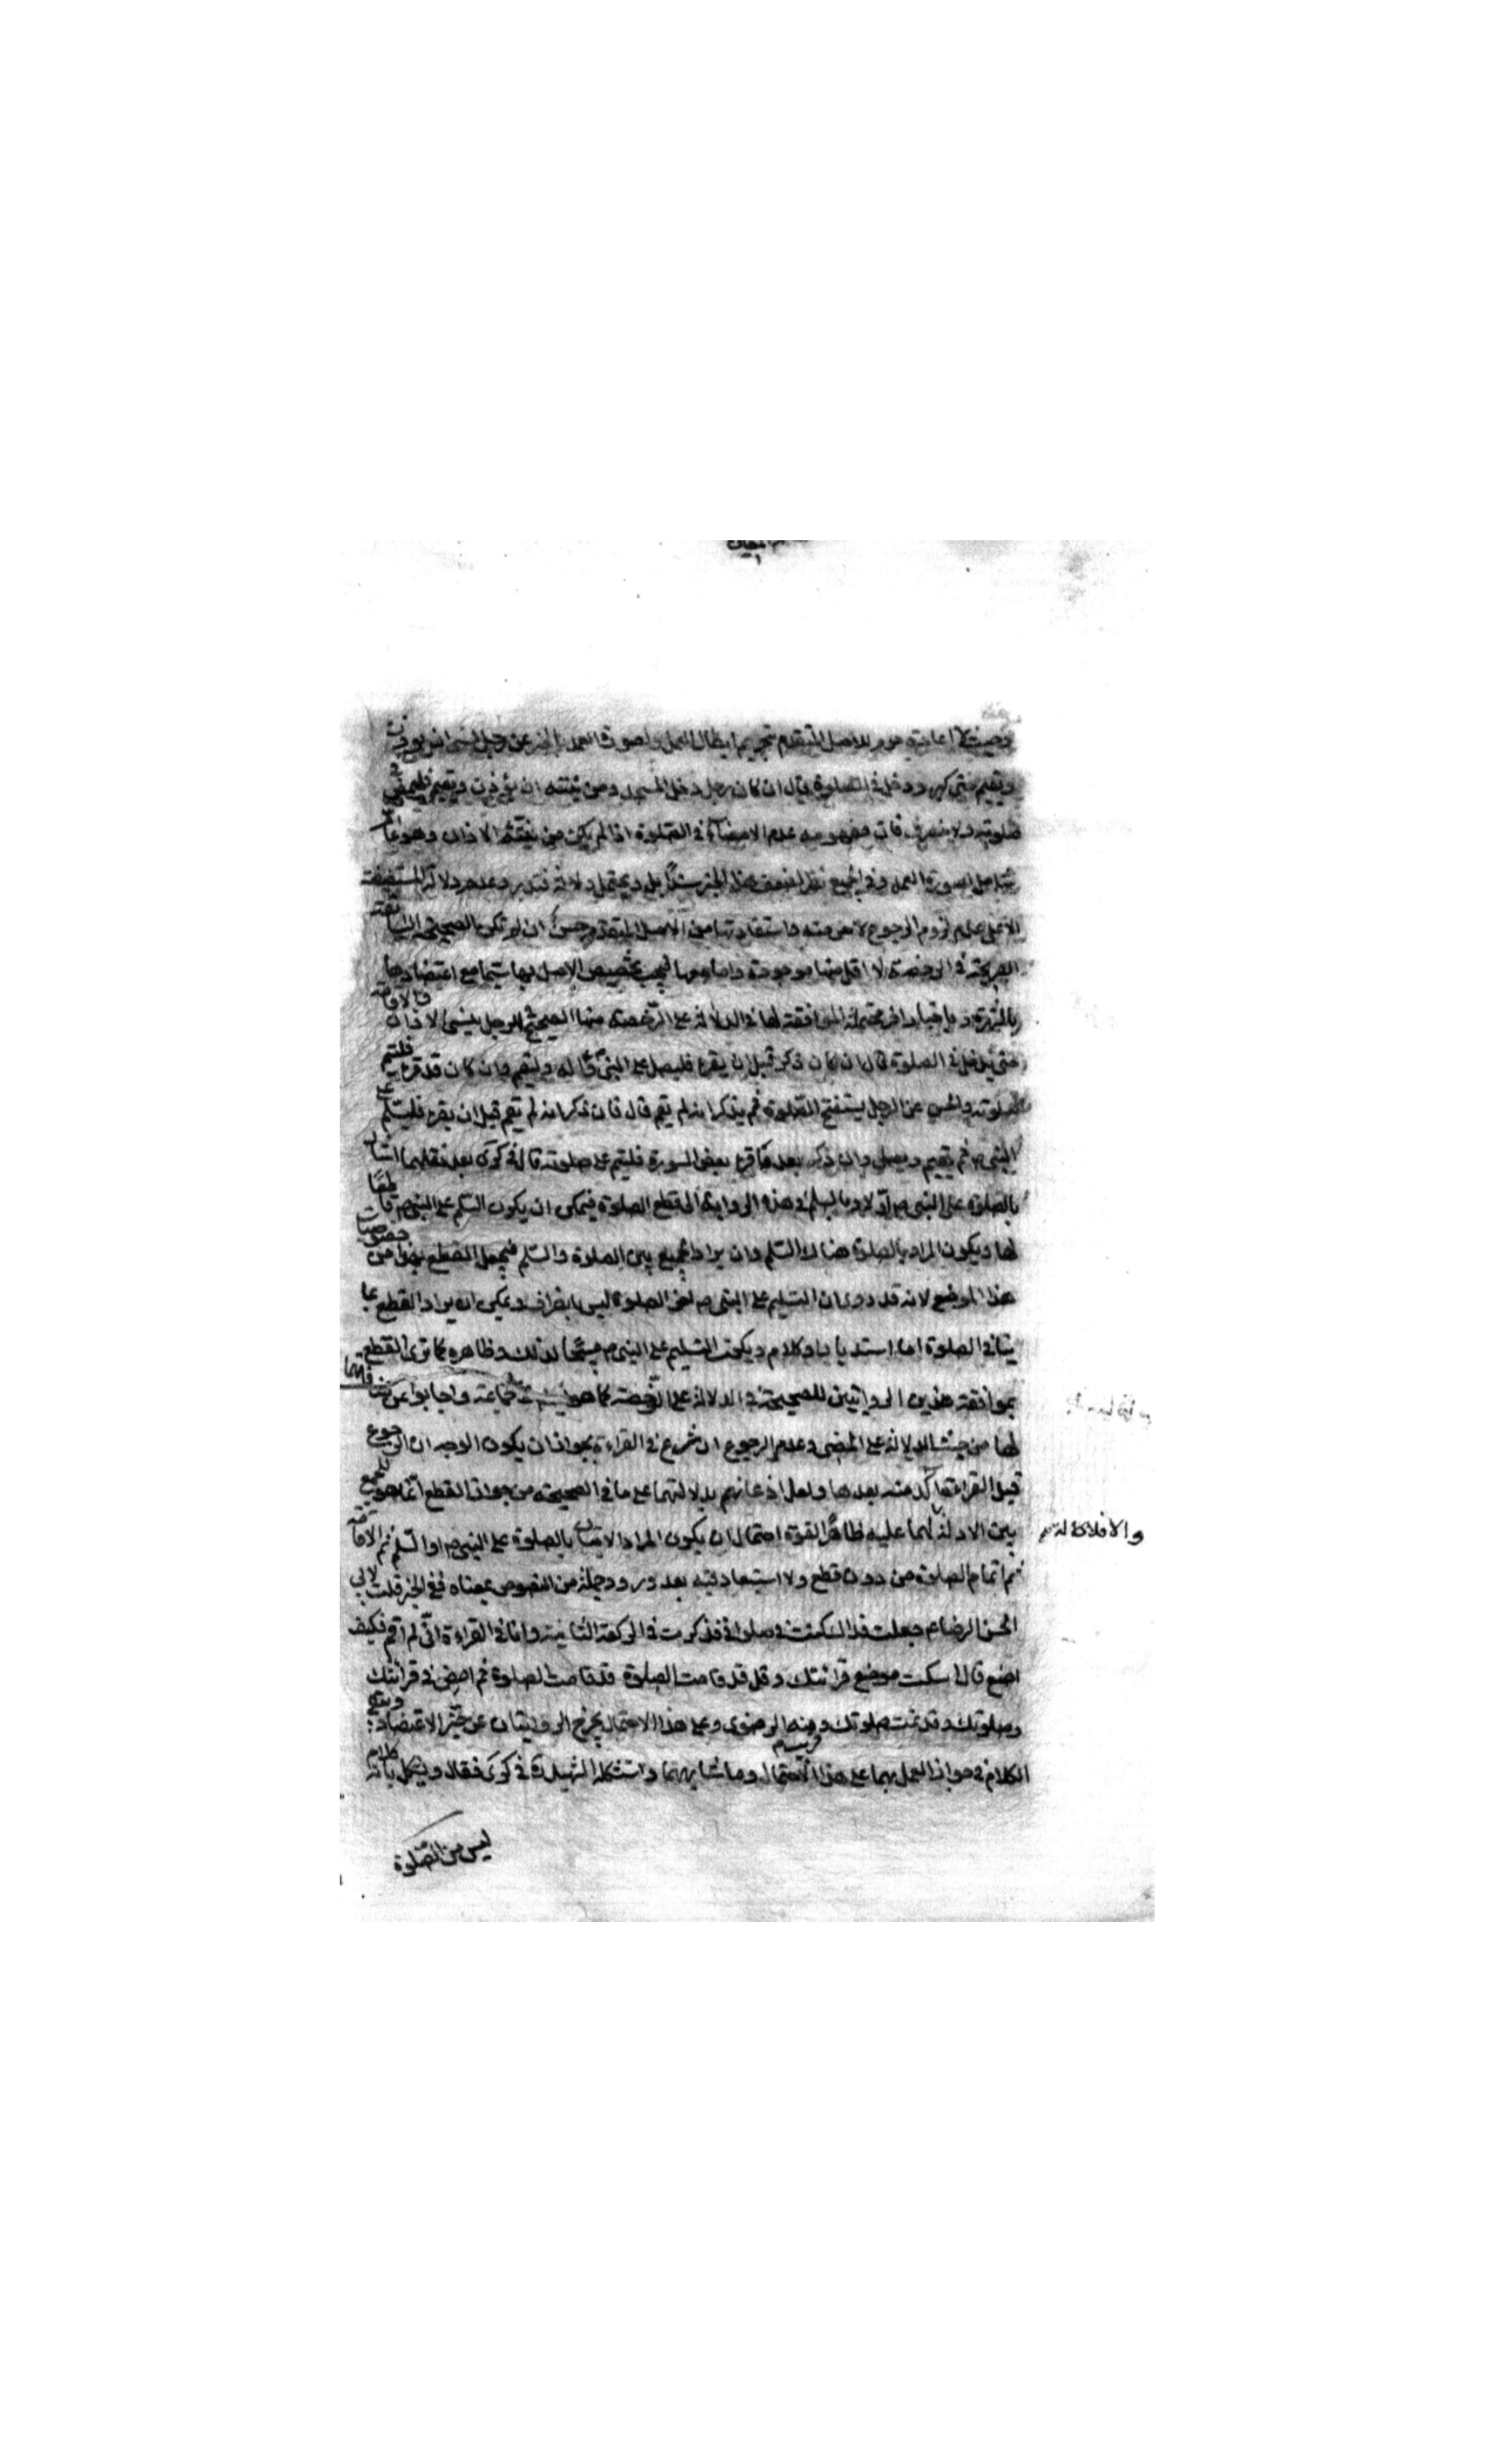 وحيث لا اعادة عموم للاصل المتقدم تحريم ابطال العمل ولصورة العمد الخبر عن رجل نسي ان يؤذن
ويقيم حتى كبر ودخل في الصلوة قال ان كان رجل دخل المسجد ومن نيته ان يؤذن ويقيم فليمض في
صلوته ولا ينصرف فان مفهومه عدم الامضاء في الصلوة اذا لم يكن من نيته الاذان وهو عام
شامل لصورة العمد وفي الجميع نظر لضعف هذا الخبر سندا بل ويحتمل دلالة فتدبر وعدم دلالة المستفيضة
الا على عدم لزوم الرجوع لا حرمته واستفادتها من الاصل المتقدم حسن ان لو تكن الصحيحة السابقة
الصريحة في الرخصة لا اقل منها موجودة واما معها فيجب تخصيص الاصل بها سيما مع اعتضادها
بالشهرة وباخبار اخر محتملة الموافقة لها في الدلالة على الرخصة منها الصحيح في الرجل ينسى الاذان والاقامة
حتى يدخل في الصلوة قال ان كان ذكر قبل ان يقرء فليصل على النبي ص واله وليقم وان كان قد قرء فليتم
صلوته والحسن عن الرجل يستفتح الصلوة ثم يذكر انه لم يقم قال فان ذكر انه لم يقم قبل ان يقرء فليسلم على
النبي ص ثم يقيم ويصلي وان ذكر بعد ما قرء بعض السورة فليتم على صلوته قال في كرى بعد نقلهما اشار
بالصلوة على النبي ص اولا وبالسلم في هذه الرواية الى قطع الصلوة فيمكن ان يكون السلم على النبي ص قاطعا
لها ويكون المراد بالصلوة هناك السلم وان يراد الجمع بين الصلوة والسلم فيجعل القطع بهذا من خصوصيات
هذا الموضع لانه قد روى ان التسليم على النبي ص اخر الصلوة ليس بانصراف ويمكن ان يراد القطع بما
ينافي الصلوة اما استدبار او كلام ويكون التسليم على النبي ص مبيحا لذلك وظاهره كما ترى القطع
بموافقة هذين الروايتين للصحيحة في الدلالة على الرخصة كما هو جماعة واجابوا عن
لها من حيث الدلالة على المضي وعدم الرجوع ان شرع في القراءة بجواز ان يكون الوجه ان الرجوع
قبل القراءة اكد منه بعدها ولعل اذعانهم بدلالتهما على ما في الصحيحة من جواز القطع انما هو للجمع
بين الادلة والا فلا دلالة لهما عليه ظاهرا لقوة احتمال ان يكون المراد الاتيان بالصلوة على النبي ص او السلم ثم الاقامة
ثم اتمام الصلوة من دون قطع ولا استبعاد فيه بعد ورود جملة من النصوص بمعناه ففي الخبر قلت لابي
الحسن الرضا ع جعلت فداك كنت في صلوتي فذكرت في الركعة الثانية وانا في القراءة اني لم اقم فكيف
اصنع قال اسكت موضع قرائتك وقل قد قامت الصلوة قد قامت الصلوة ثم امض في قرائتك
وصلوتك وقد تمت صلوتك ومنه الرضوى وعلى هذا الاحتمال يخرج الروايتان عن حيز الاعتضاد ويبقى
الكلام في جواز العمل بهما على هذا الاحتمال وما شابههما واستشكله الشهيد ره في كرى فقال ويشكل بانه كلام
ليس من الصلوة